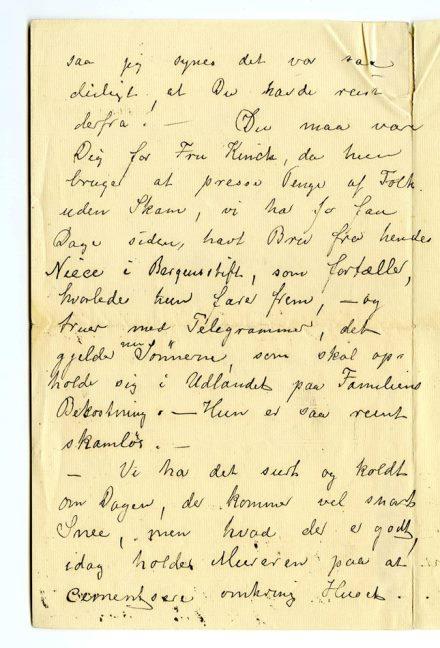 saa jeg synes det var saa
deiligt, at Du havde reist
derfra! — Du maa vare
Dig for Fru Kinck, da hun
bruger at presse Penge af Folk
uden Skam, vi ha for faa
Dage siden, havt Brev fra hendes
Niece i Bergensstift, som fortæller,
hvorledes hun farer frem, — og
truer med Telegrammer, det
gjelder nu Sønnerne, som skal op-
holde sig i Udlandet paa Familiens
Bekostning. — Hun er saa reent
skamløs. —
— Vi ha det surt og koldt
om Dagen, der kommer vel snart
Snee, men hvad der er godt,
idag holder Mureren paa at
cementere omkring Huset.